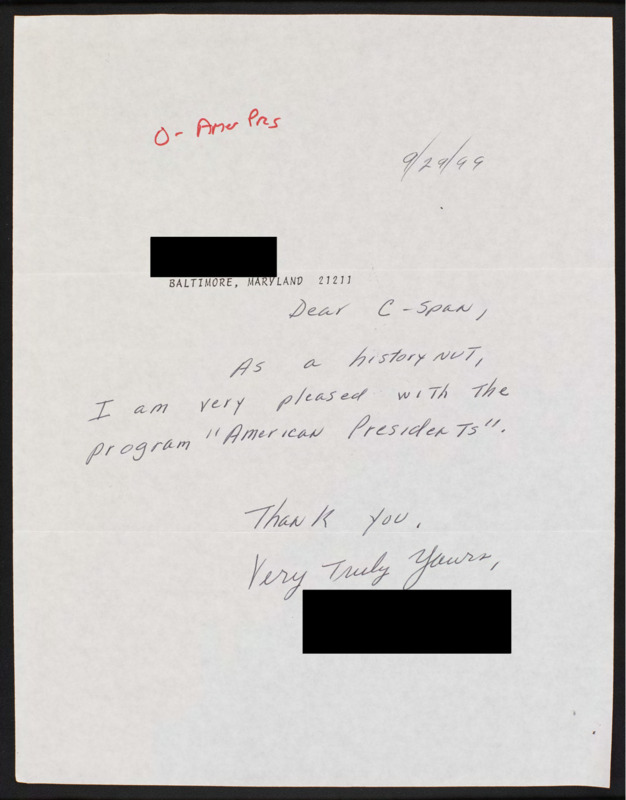 O- Amer Pres
9/29/99
BALTIMORE, MARYLAND 21211
Dear C-Span,
As a history nut,
I am very pleased with the
program "American Presidents".
Thank you.
Very Truly Yours,